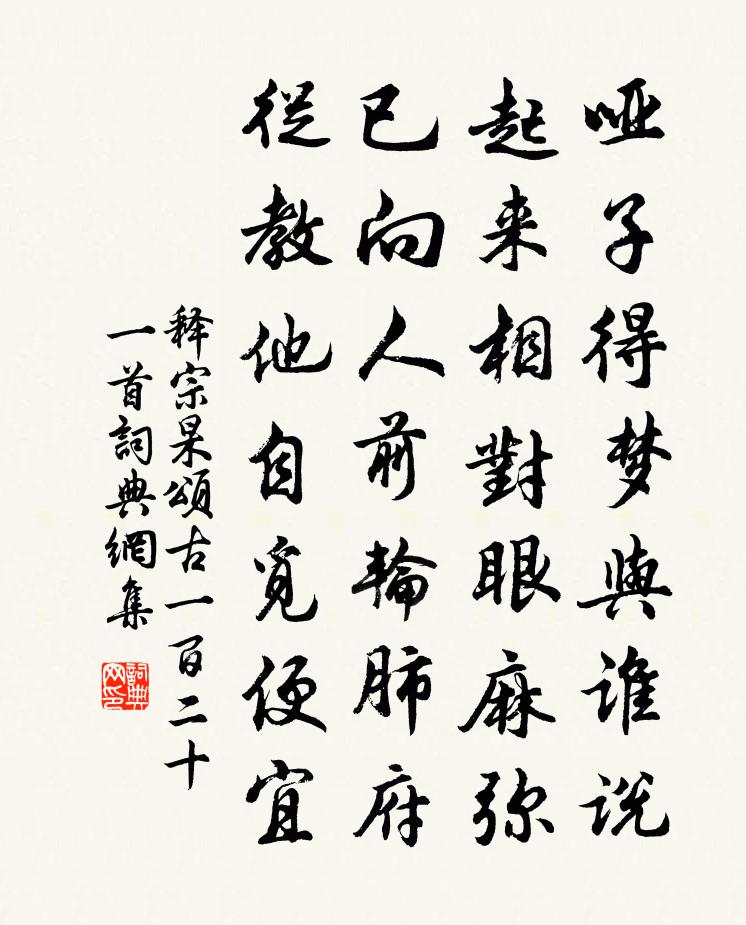 哑子得梦与谁说
起来相對眼麻弥
已向人前輪肺府
従教他自觅便宜
释宗杲頌古一百二十
一首詞典網集
詞典
网印